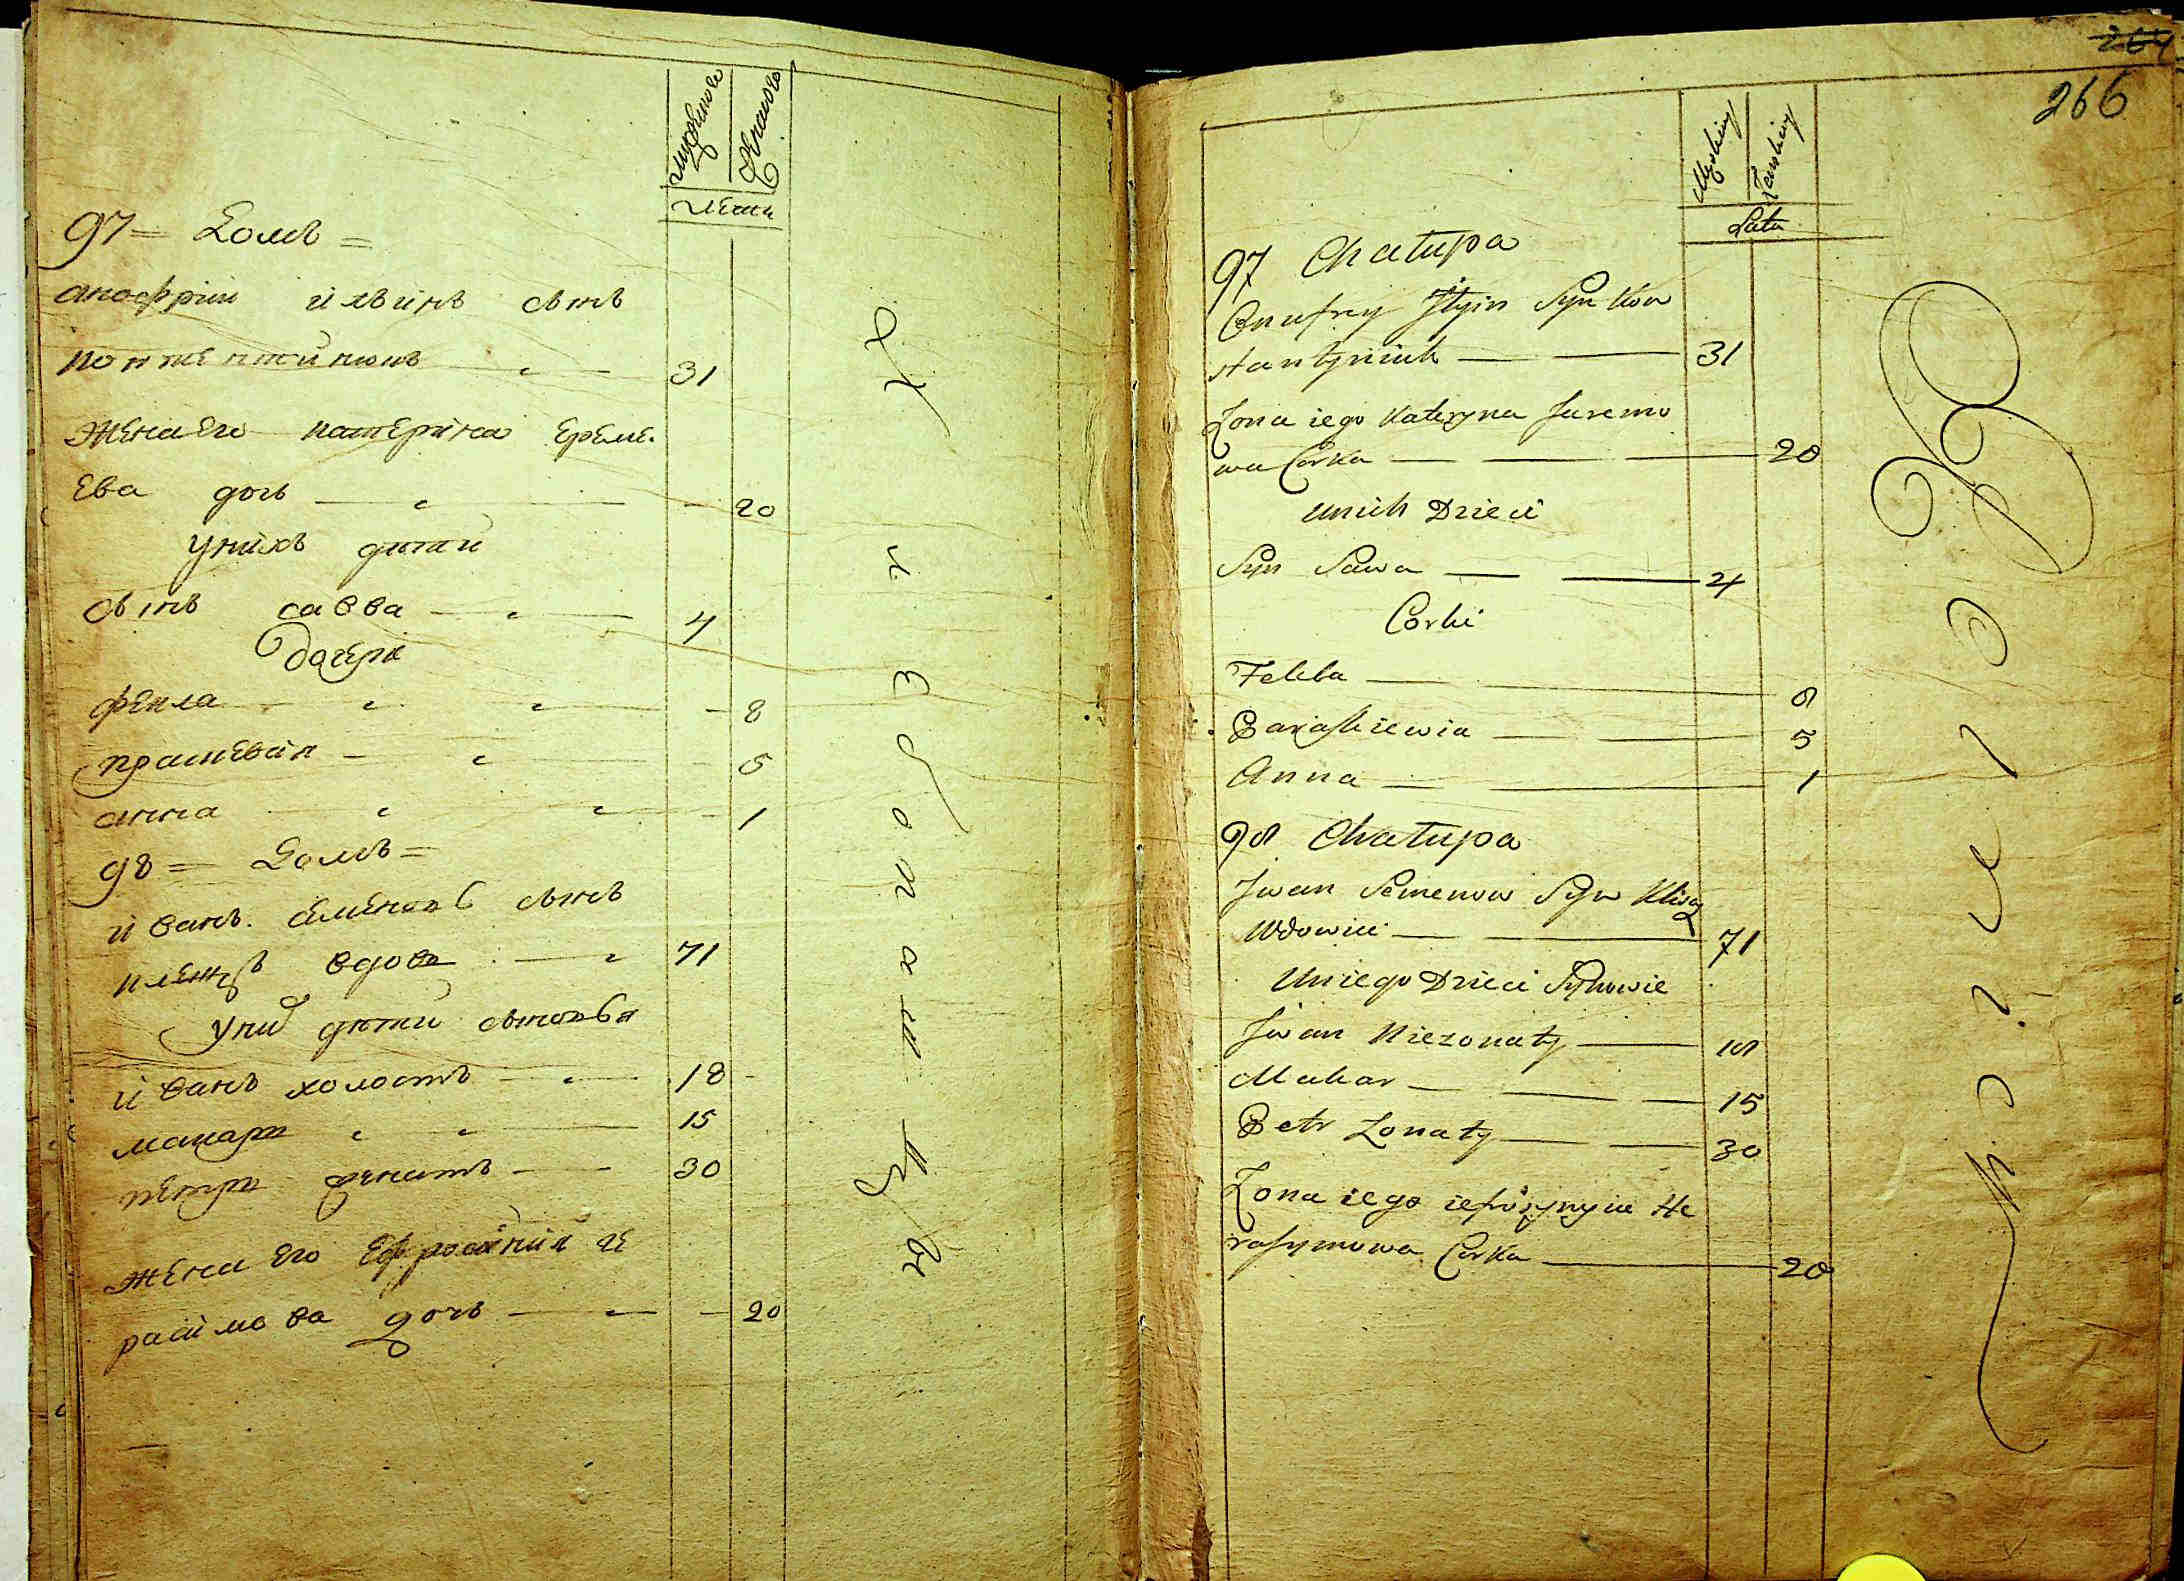 мужеска
женска
лета
97 = Домъ =
анофрiи iлъiнъ сынъ
31
жена Его катерiна Ереме-
Ева дочь 20
у нiхъ дети
сынъ савва 4
Дочерi
фекла 8
праскевiя 5
анна 1
98 = Домъ =
iванъ семеновъ сынъ
вдова 71
дети сыновья
iванъ холостъ 18
макаръ 15
петръ женатъ 30
жена Его Ефросiнiя ге
расiмова дочь 20
264
266
Męskiey
Żenskiey
Lata
97 Chatupa
Onufrey Jlyin Syn Kon
stantyniuk 31
Zona iego Kateryna Jaremo
wa Corka 20
Unich Dzieci
Syn Sawa 4
Corki
Fekla 8
Paraskiewia 5
Anna 1
98 Chatupa
Jwan Semenow Syn
Wdowiec 71
Uniego Dzieci Synowie
Jwan Niezonaty 18
Makar 15
Petr Zonaty 30
Zona iego iefrozynyia He
rasymowa Corka 20